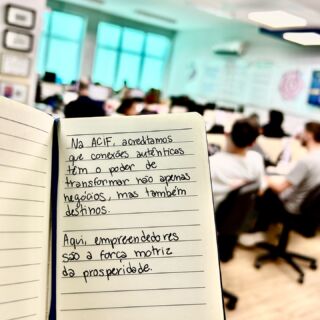 Na ACIF, acreditamos
que conexões autênticas
têm o poder de
transformar não apenas
negócios, mas também
destinos.
Aqui, empreendedores
são a força motriz
da prosperidade.